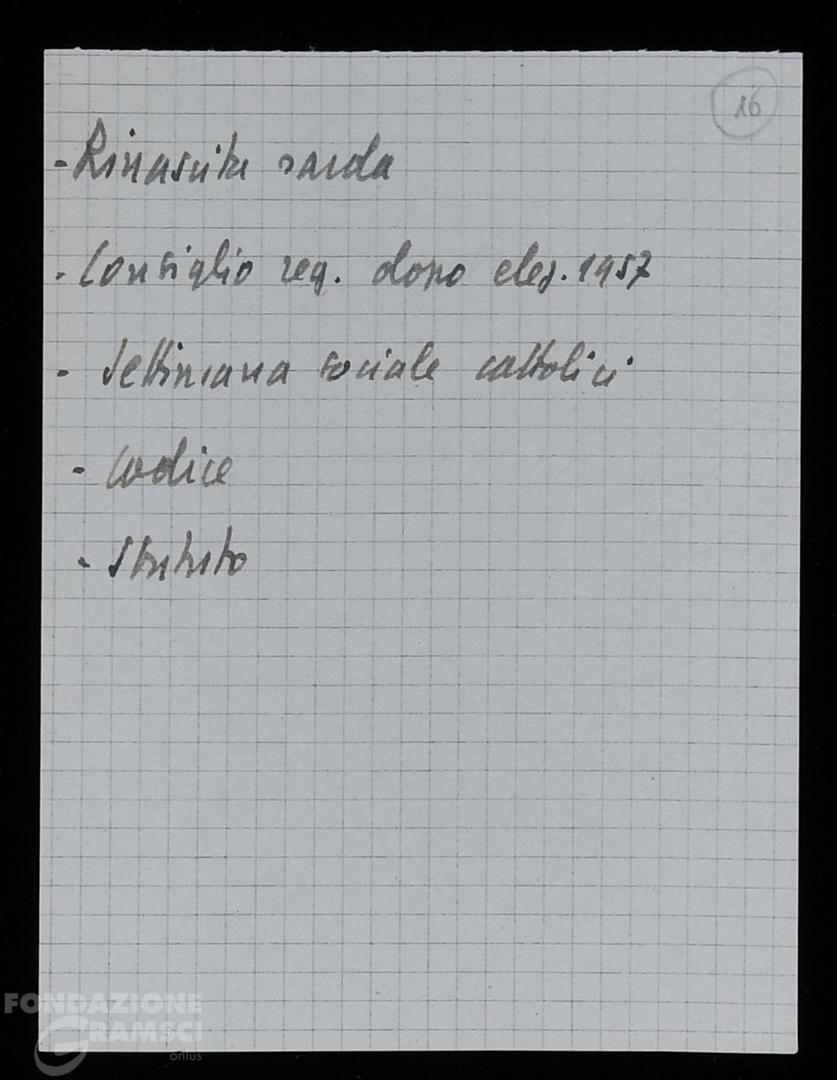 16
- Rinascita sarda
- Consiglio reg. dopo elez. 1957
- Settimana sociale cattolici
- Codice
- Statuto
FONDAZIONE
GRAMSCI
onlus